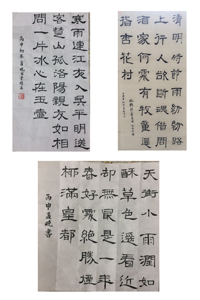 寒雨連江夜入吳平明送
客楚山孤洛陽親友如相
問一片冰心在玉壺
清明時節雨紛紛路
上行人欲斷魂借問
酒家何處有牧童遙
指杏花村
天街小雨潤如
酥草色遙看近
却無最是一年
春好處絕勝煙
柳滿皇都
丙申夏曉書